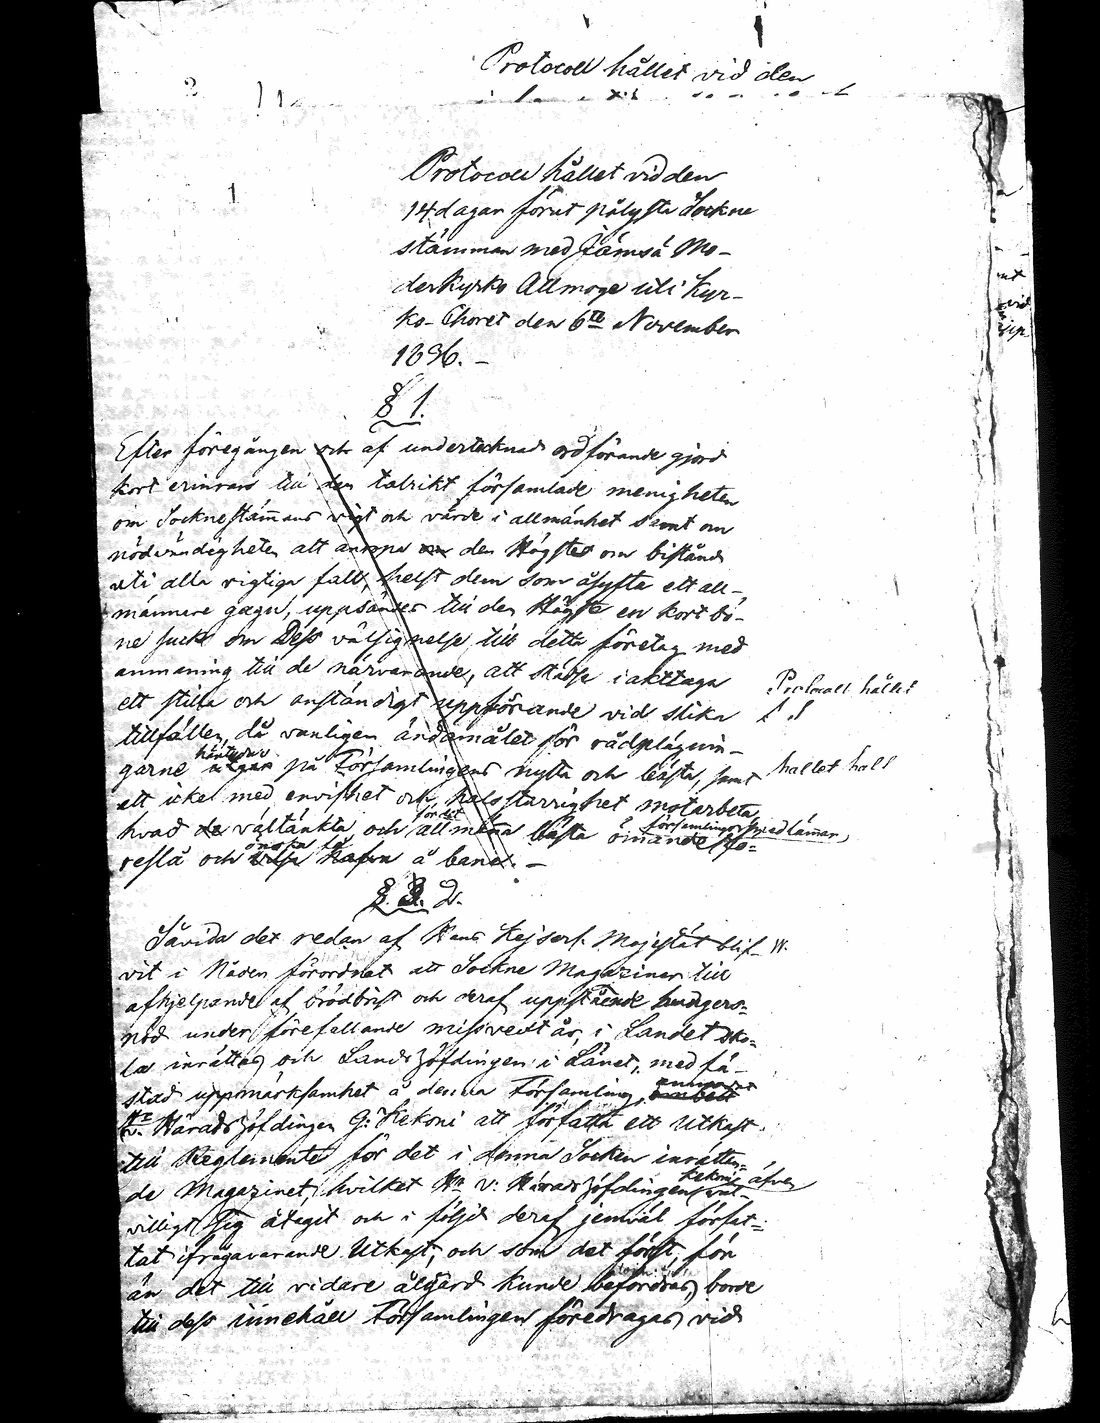 Protocoll hållet vid den
2
1
Protocoll hållet vid den
14 dagar förut pålysta Sockne
stämman med Jämsä Mo-
derkyrko Allmoge uti Kyr-
ko-Choret den 6te November
1836. -
§ 1.
Efter föregången och af undertecknad ordförande gjord
kort erinran till den talrikt församlade menigheten
om Socknestämmans vigt och värde i allmänhet samt om
nödvändigheten att anropa om den Högstes om bistånd
uti alla vigtiga fall, helst dem som åsyfta ett all-
männare gagn, uppsändes till den Högste en kort bö-
ne suck om Dess välsignelse till detta företag med
anmaning till de närvarande, att städse iakttaga
ett stilla och anständigt uppförande vid slika
tillfällen, då vanligen ändamålet för rådplägnin-
garne på Församlingens nytta och bästa, samt
häntyder
ett icke med envishet och halsstarrighet motarbeta
hvad de väl tänkta, och allmänna bästa ömande fö-
för det
församlingens medlämmar,
reslå och vilja hafva å bane. -
önska
§. 2.
Såvida det redan af Hans Kejserl. Majestät blif-
vit i Nåder förordnat att Sockne Magaziner till
afhjelpande af brödbrist och deraf uppstående hungers-
nöd under förefallande missvext år, i Landet sko-
la inrättas, och Landshöfdingen i Länet, med fä-
stad uppmärksamhet å denna Församling,
anmodat
Hr v. Häradshöfdingen G: Kekoni att författa ett Utkast
till Reglemente för det i denna Socken inrätten-
de Magazinet, hvilket Hr v: Häradshöfdingen väl-
Kekoni äfven
villigt sig åtagit och i följd deraf jemväl förfat-
tat ifrågavarande Utkast, och som det först, förr
än det till vidare åtgärd kunde befordras, borde
till dess innehåll Församlingen föredragas, vid
Protocoll hållet
hållet håll